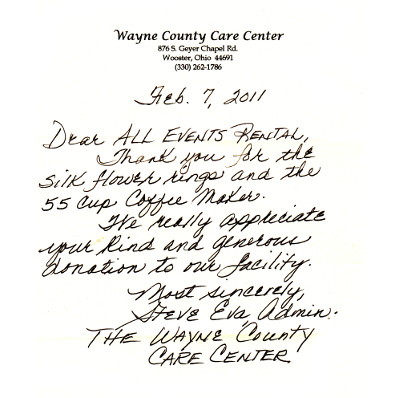 Wayne County Care Center
876 S. Geyer Chapel Rd.
Wooster, Ohio 44691
(330) 262-1786
Feb. 7, 2011
Dear ALL EVENTS RENTAL,
Thank you for the
silk flower rings and the
55 cup Coffee Maker.
We really appreciate
your kind and generous
donation to our facility.
Most sincerely,
Steve Eva, Admin.
THE WAYNE County
CARE CENTER